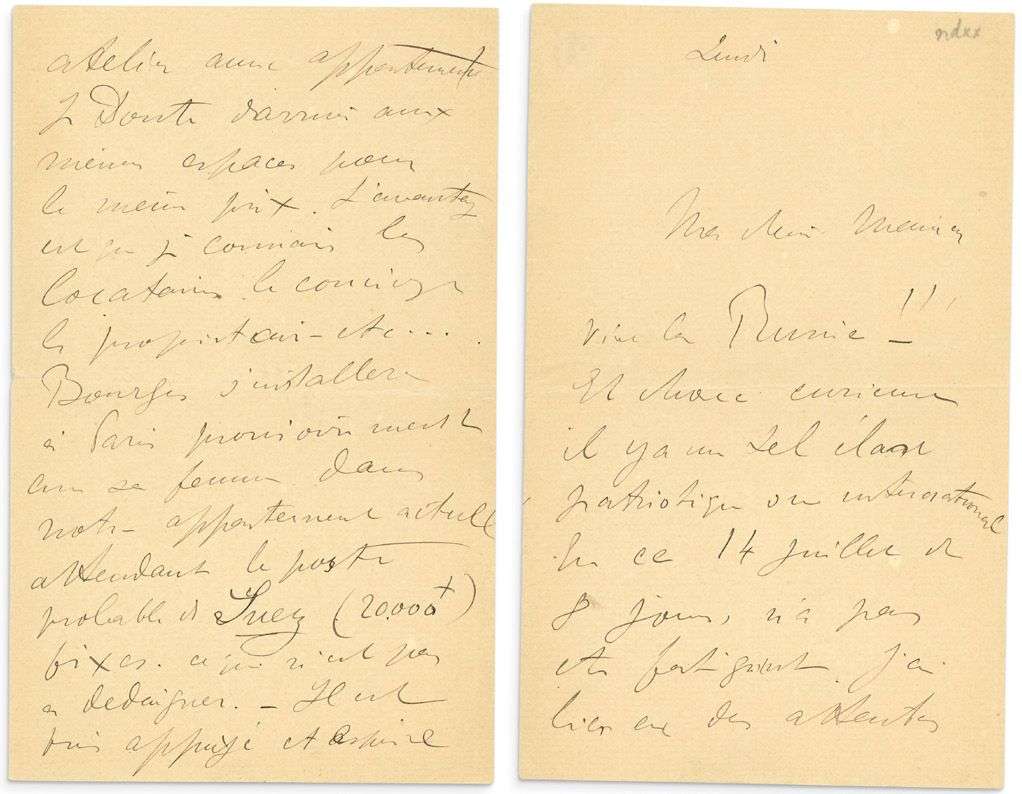 atelier avec appartement
Je Doute d'arriver aux
mêmes espaces pour
le même prix. L'avantage
est que je connais les
locataires le concierge
le propriétaire - etc...
Bourges s'installera
à Paris provisoirement
avec sa femme dans
notre appartement actuel
attendant le poste
probable de Suez (20.000f)
fixes. ce qui n'est pas
à dedaigner. - Il est
très appuyé et espère
Lundi
Ma chère Maman
Vive la Russie - !!!
Et chose curieuse
il y a un tel élan
patriotique ou international
que ce 14 juillet de
8 jours, n'a pas
été fatigant. J'ai
bien eu des attentes